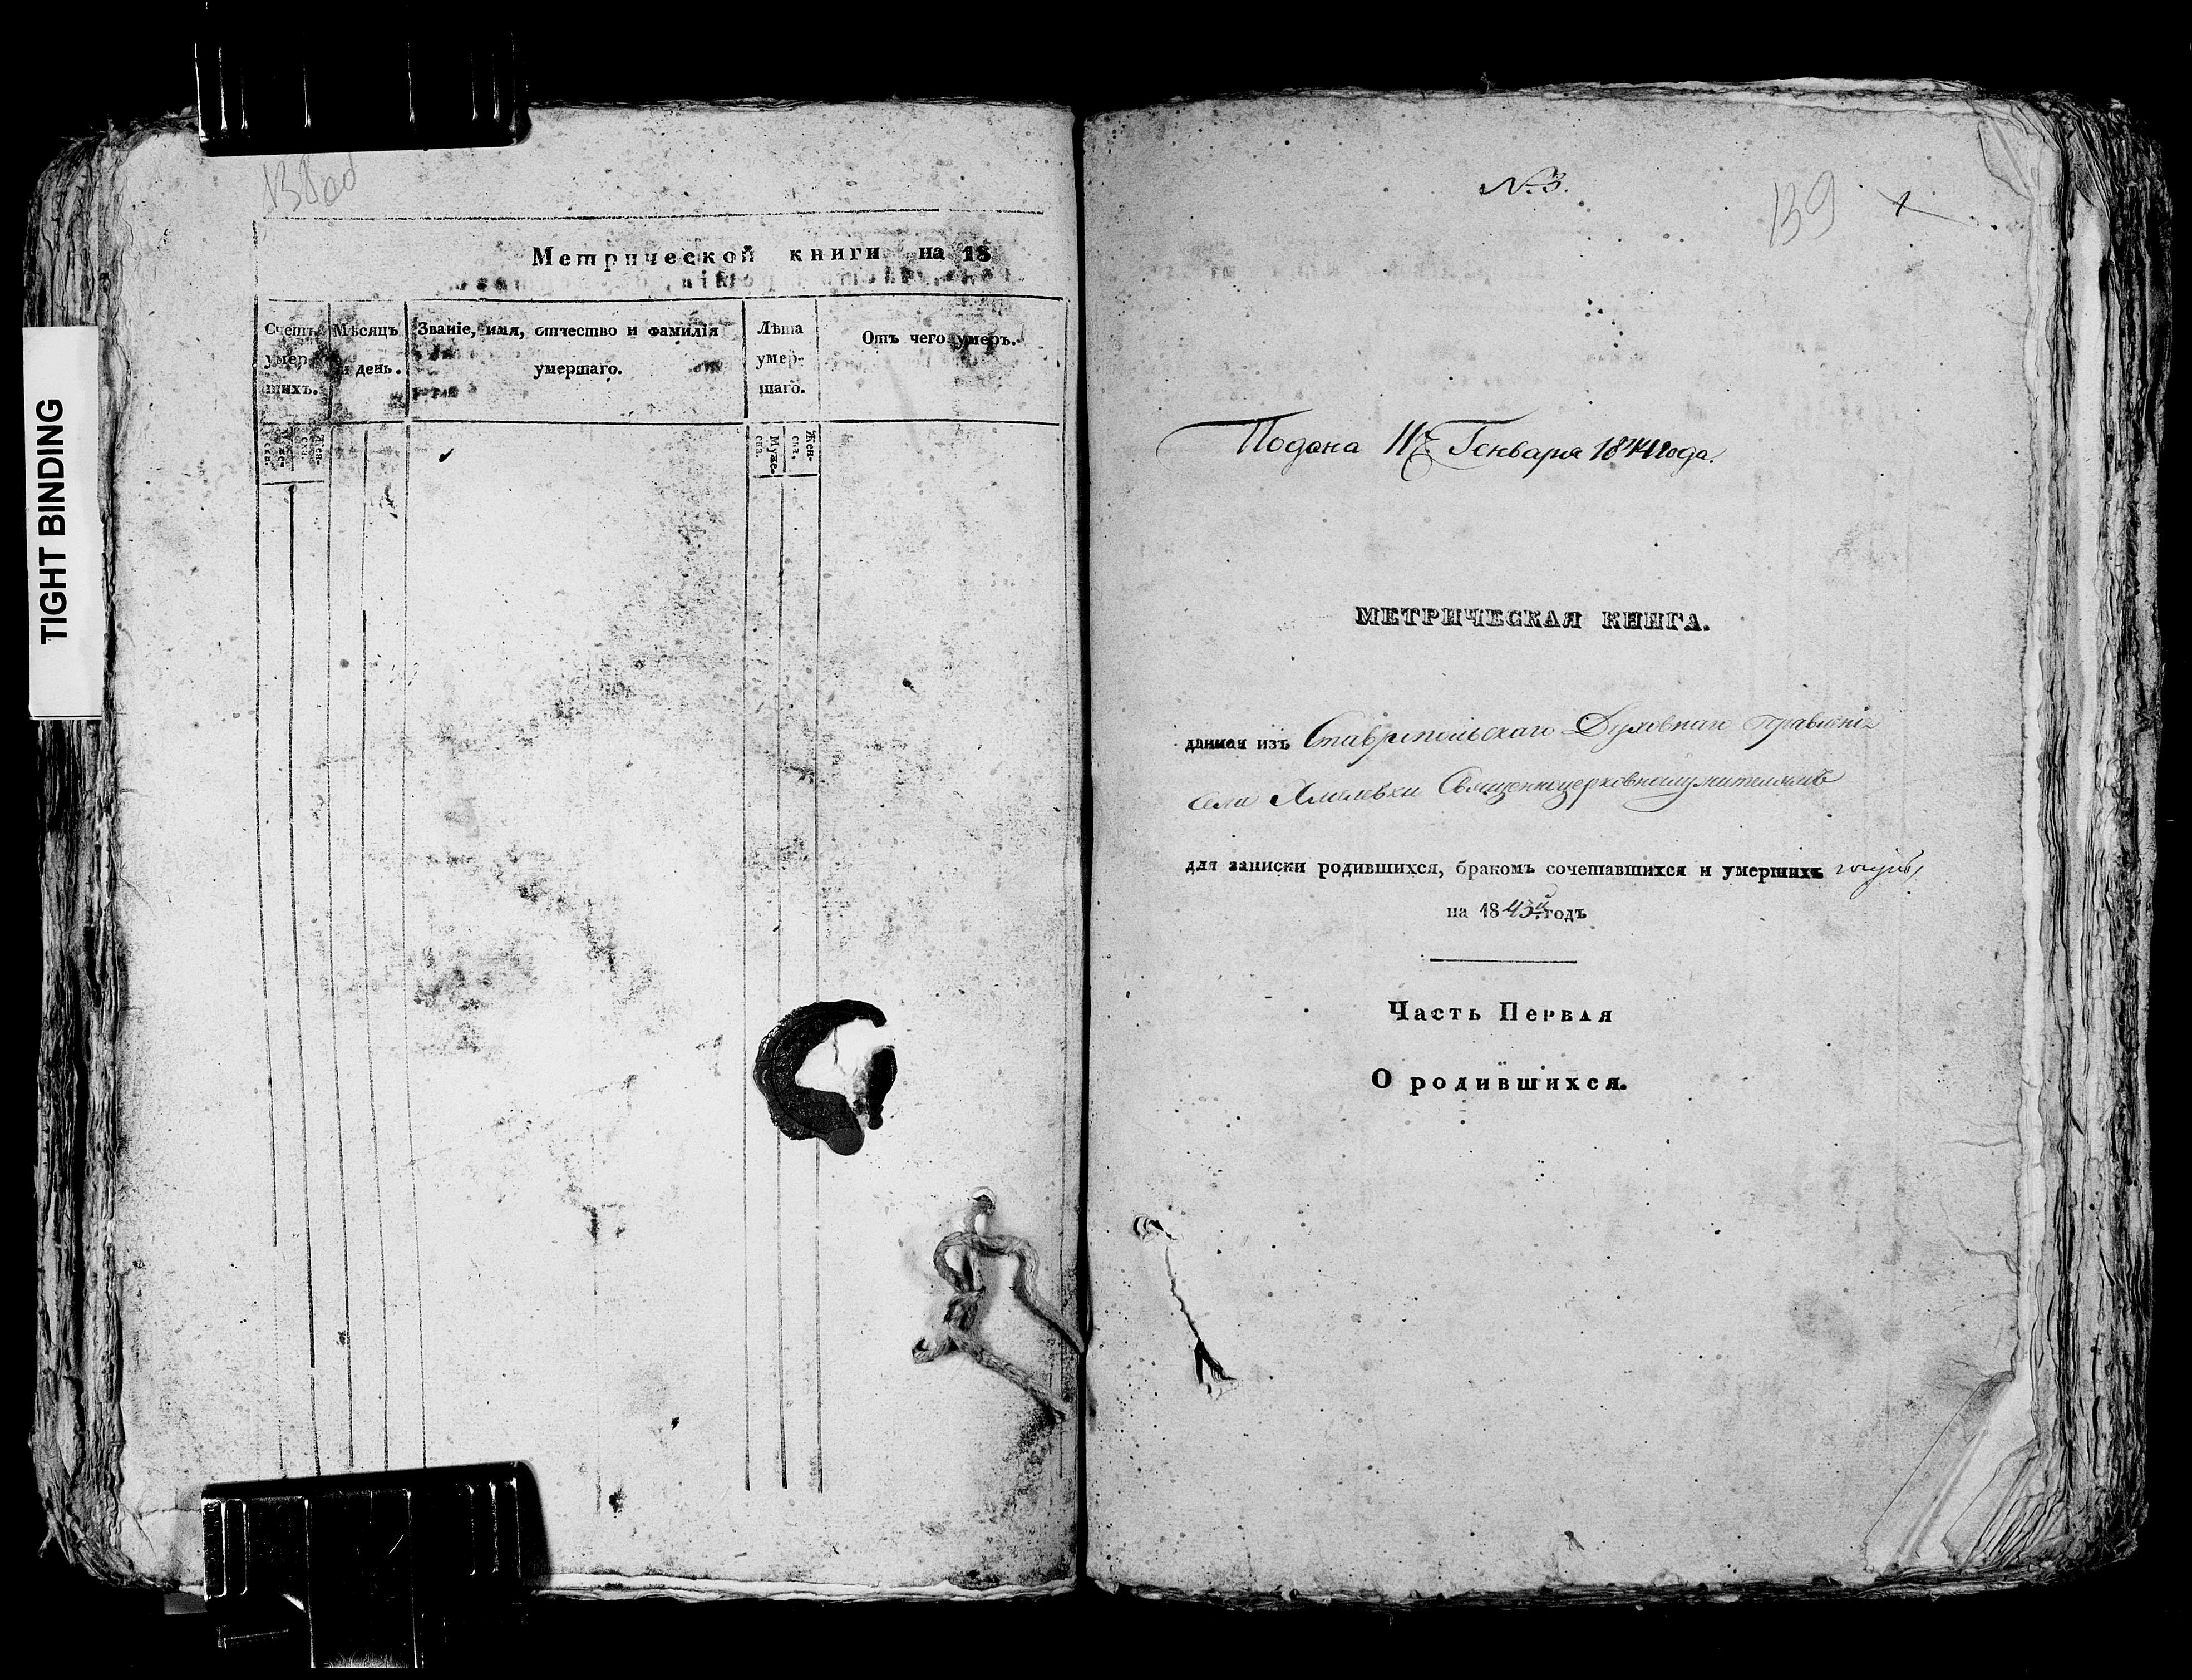 TIGHT BINDING
138об
Метрической книги на 18
Счетъ умер- шихъ.
Мѣсяцъ и день.
Званіе, имя, отчество и фамилія
умершаго.
Лѣта умер- шаго.
Отъ чего умеръ.
Муже- ска.
Жен- ска.
Муже- ска.
Жен- ска.
№ 3.
139
1
Подана 11 Генваря 1844 года.
МЕТРИЧЕСКАЯ КНИГА.
данная изъ Ставропольскаго Духовнаго Правленія
села Хмелевки Священноцерковнослужителямъ
для записки родившихся, бракомъ сочетавшихся и умершихъ
на 1843й годъ
Часть Первая
О родившихся.